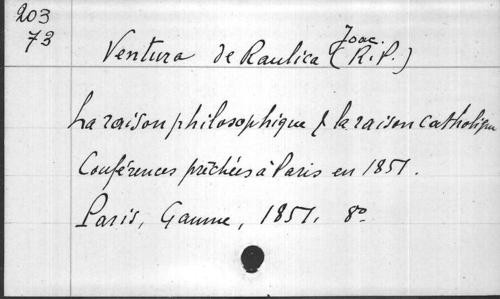 203
73
Joac.
Ventura de Raulica (R.P.)
La raison philosophique & la raison catholique
Conférences prêchées à Paris en 1851.
Paris, Gaume, 1851. 8º